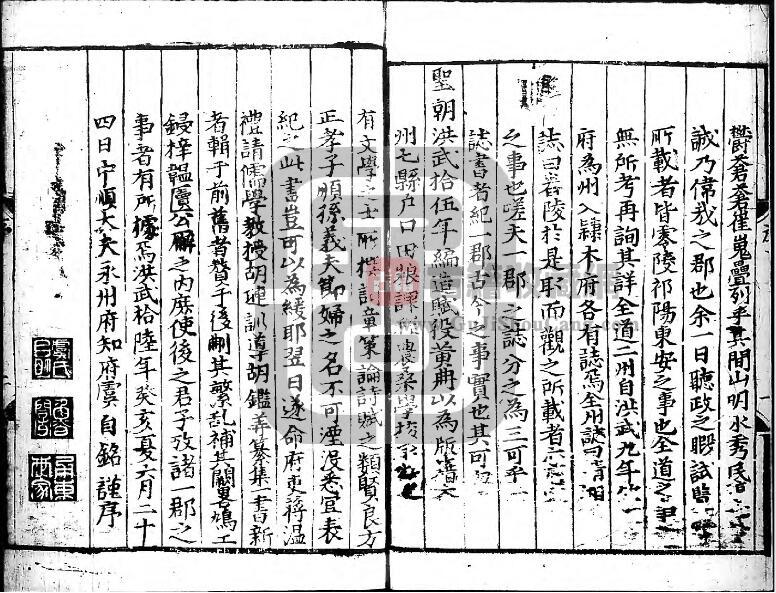 鬱蒼蒼崔嵬疊列乎其間山明水秀民
誠乃偉哉之郡也余一日聽政之暇試
所載者皆零陵祁陽東安之事也全道之
無所考再詢其詳全道二州自洪武九年
府為州入隸本府各有誌焉全州誌曰清湘
誌曰舂陵於是取而觀之所載者
之事也嗟夫一郡之誌分之為三可乎
誌書者紀一郡古今之事實也其可
聖朝洪武拾伍年編造賦役黃冊以為版籍
州七縣戶口田糧課農桑學校
有文學之士所撰詞章策論詩賦之類賢良方
正孝子順孫義夫節婦之名不可湮沒悉宜表
紀之此書豈可以為緩耶翌日遂命府吏蔣溫
禮請儒學教授胡璉訓導胡鑑等纂集書新
者輯于前舊者贅于後刪其繁亂補其闕畧鳩工
鋟梓韞匵公廨之內庶使後之君子攷諸郡之
事者有所據焉洪武拾陸年癸亥夏六月二十
四日中順大夫永州府知府虞自銘謹序
虞氏